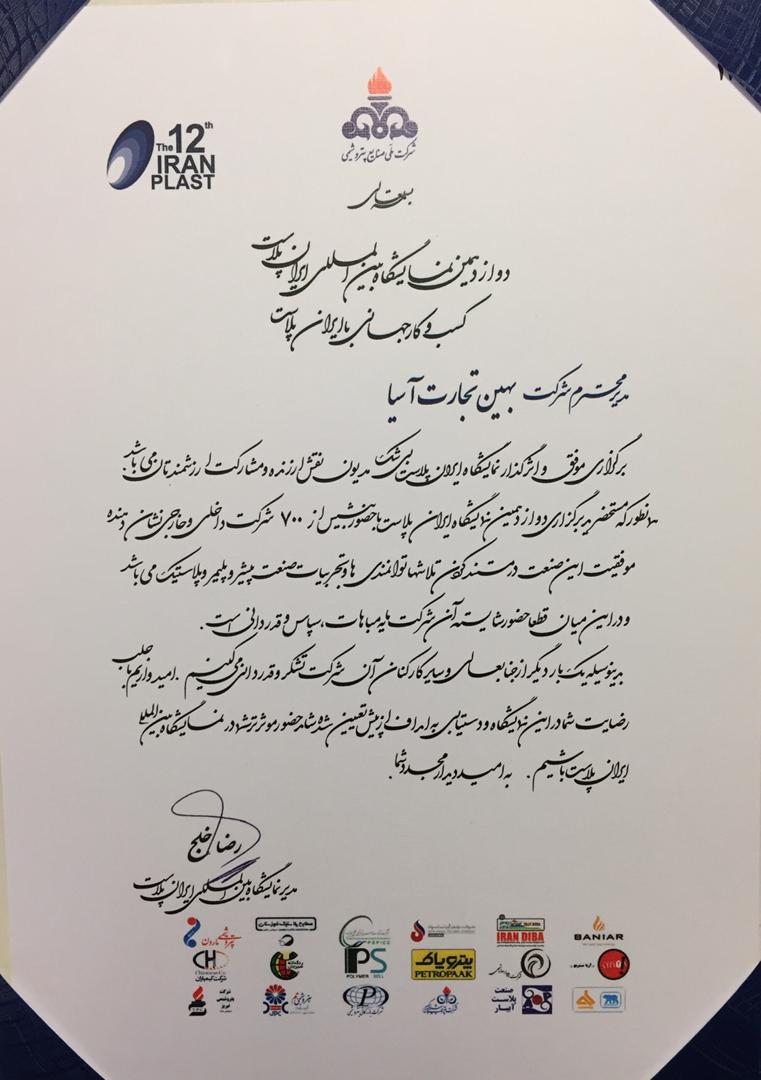 The 12th
IRAN
PLAST
شرکت ملی صنایع پتروشیمی
بسمه تعالی
دوازدهمین نمایشگاه بین المللی ایران پلاست
کسب و کار جهانی با ایران پلاست
مدیر محترم شرکت بهین تجارت آسیا
برگزاری موفق و اثرگذار نمایشگاه ایران پلاست بی شک مدیون نقش ارزنده و مشارکت ارزشمندتان می باشد.
همانطور که مستحضرید برگزاری دوازدهمین نمایشگاه ایران پلاست با حضور بیش از ۷۰۰ شرکت داخلی و خارجی نشان دهنده
موفقیت این صنعت در مستند کردن تلاشها توانمندی ها و تجربیات صنعت پیشرو پلیمر و پلاستیک می باشد
و در این میان قطعا حضور شایسته آن شرکت مایه مباهات، سپاس و قدردانی است.
بدینوسیله یک بار دیگر از جنابعالی و سایر کارکنان آن شرکت تشکر و قدردانی می کنیم. امیدواریم با جلب
رضایت شما در این نمایشگاه و دستیابی به اهداف از پیش تعیین شده شاهد حضور موثرتر شما در نمایشگاه بین المللی
ایران پلاست باشیم. به امید دیدار مجدد شما.
رضا خلج
مدیر نمایشگاه بین المللی ایران پلاست
پتروشیمی مارون
صنایع پلاستیک خوزستان
PSPICC
IRAN DIBA
BANIAR
CH
PS
POLYMER
پتروپاک
PETROPAAK
شرکت پتروشیمی تبریز
JPC
صنعت پلاست آبیار